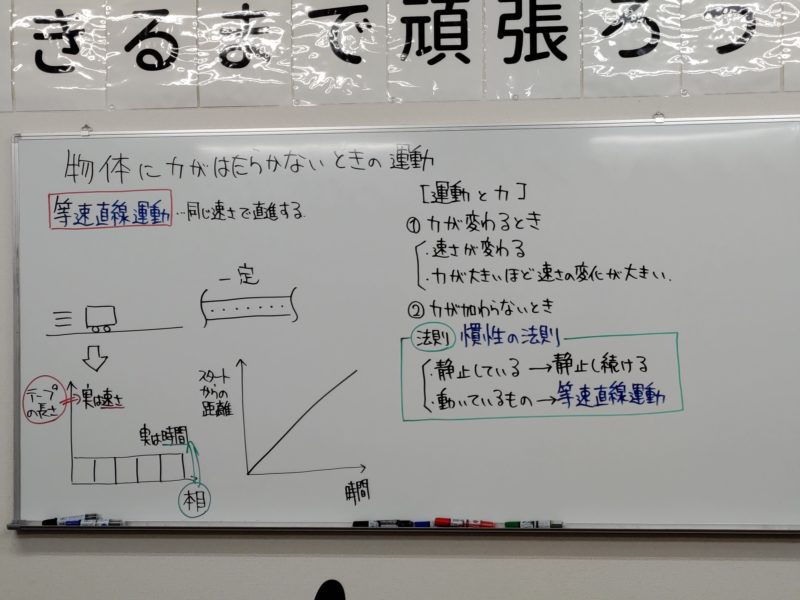 きるまで頑張ろう
物体に力がはたらかないときの運動
等速直線運動…同じ速さで直進する
一定
テープの長さ
実は速さ
実は時間
本目
スタートからの距離
時間
[運動と力]
①力が変わるとき
・速さが変わる
・力が大きいほど速さの変化が大きい.
②力が加わらないとき
法則 慣性の法則
・静止している→静止し続ける
・動いているもの→等速直線運動